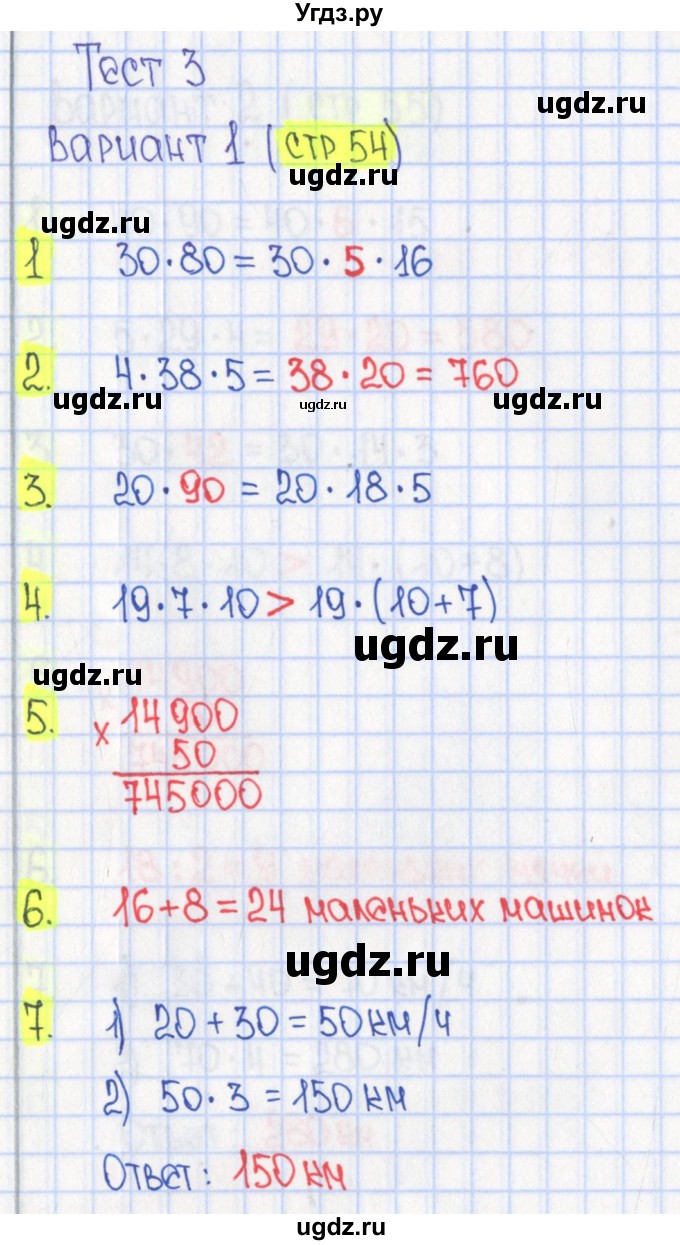 Угдз.ру
Тест 3
ugdz.ru
Вариант 1 (стр 54)
ugdz.ru
ugdz.ru
1 30·80=30·5·16
2. 4·38·5=38·20=760
ugdz.ru ugdz.ru ugdz.ru
3. 20·90=20·18·5
4. 19·7·10>19·(10+7)
ugdz.ru
ugdz.ru
5. x 14900
50
745000
6. 16+8=24 маленьких машинок
ugdz.ru
7. 1) 20+30=50км/ч
2) 50·3=150км
Ответ: 150км
ugdz.ru